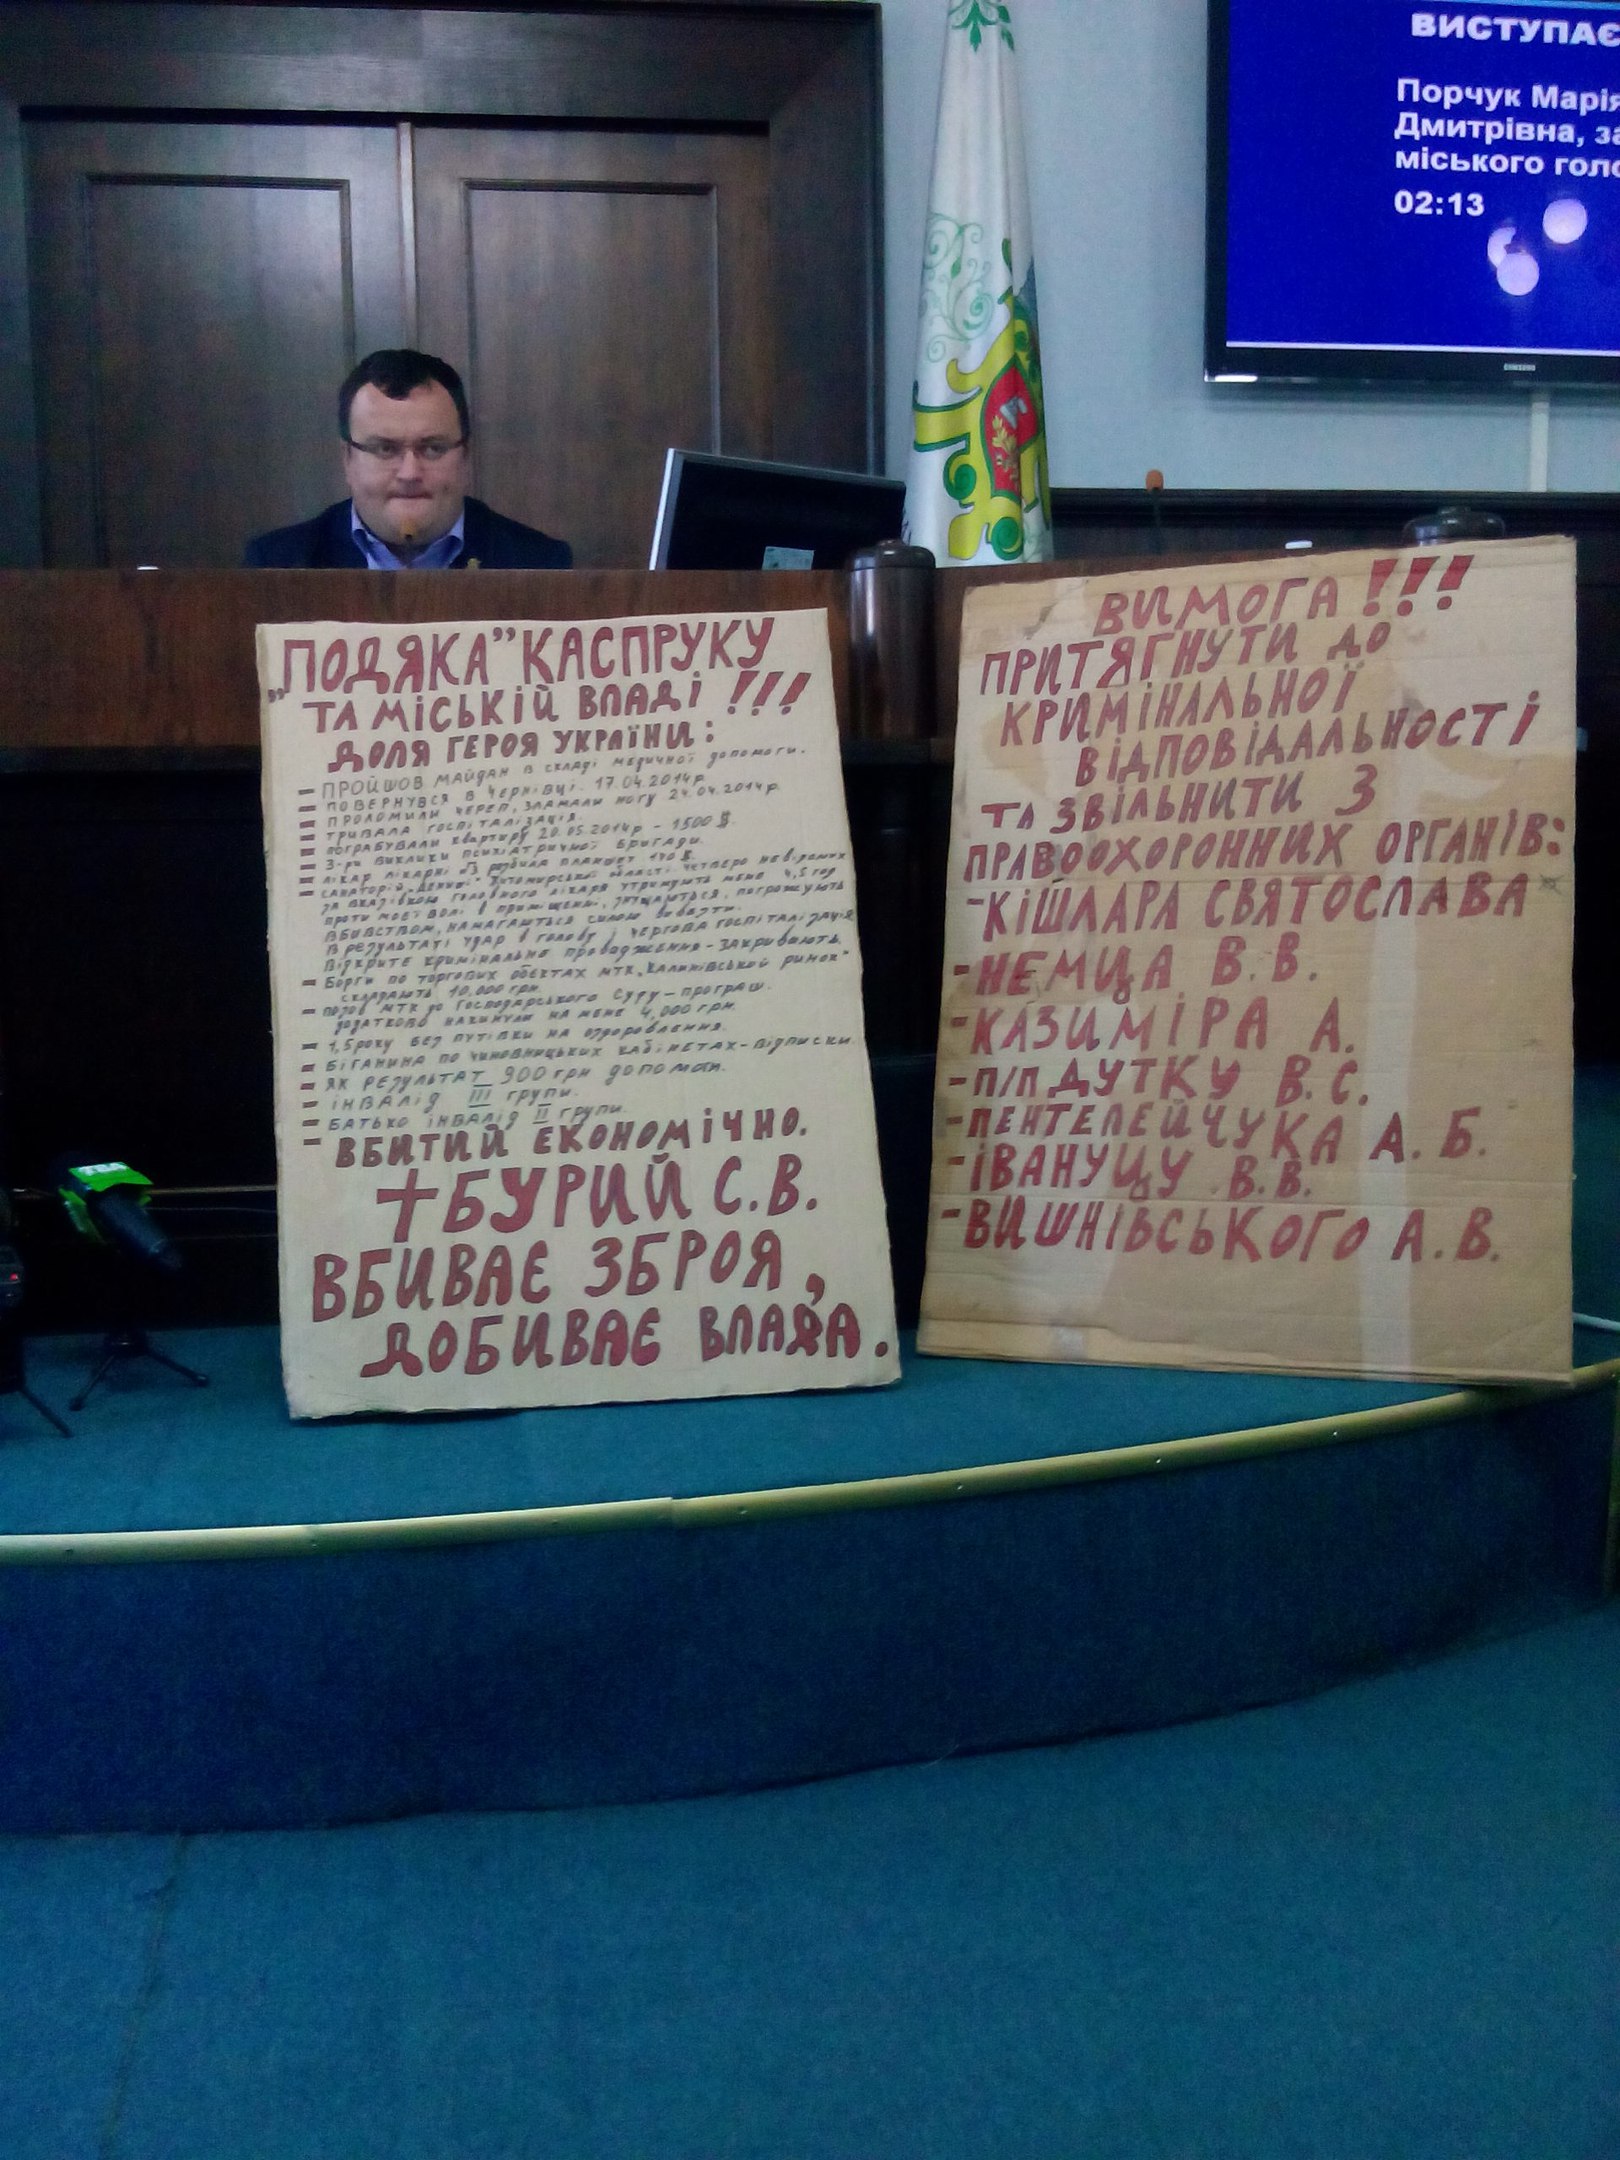 ВИСТУПАЄ
Порчук Марія
Дмитрівна, за
міського голо
02:13
„ПОДЯКА” КАСПРУКУ
ТА МІСЬКІЙ ВЛАДІ !!!
ДОЛЯ ГЕРОЯ УКРАЇНИ:
– ПРОЙШОВ МАЙДАН В СКЛАДІ МЕДИЧНОЇ ДОПОМОГИ.
– ПОВЕРНУВСЯ В ЧЕРНІВЦІ. 17.04.2014р.
– ПРОЛОМИЛИ ЧЕРЕП, ЗЛАМАЛИ НОГУ 24.04.2014р.
– ТРИВАЛА ГОСПІТАЛІЗАЦІЯ.
– ПОГРАБУВАЛИ КВАРТИРУ 20.05.2014р – 1500 $.
– 3-РИ ВИКЛИКИ ПСИХІАТРИЧНОЇ БРИГАДИ.
– ЛІКАР ЛІКАРНІ РОЗБИЛА ПЛАНШЕТ 140 $.
– САНАТОРІЙ „ДЕНИШІ” ЖИТОМИРСЬКОЇ ОБЛАСТІ ЧЕТВЕРО НЕВІДОМИХ
ЗА ВКАЗІВКОЮ ГОЛОВНОГО ЛІКАРЯ УТРИМУЮТЬ МЕНЕ 4,5 ГОД
ПРОТИ МОЄЇ ВОЛІ В ПРИМІЩЕННІ, ЗНУЩАЮТЬСЯ, ПОГРОЖУЮТЬ
ВБИВСТВОМ, НАМАГАЮТЬСЯ СИЛОЮ ВИВЕЗТИ.
В РЕЗУЛЬТАТІ УДАР В ГОЛОВУ І ЧЕРГОВА ГОСПІТАЛІЗАЦІЯ
ВІДКРИТЕ КРИМІНАЛЬНЕ ПРОВАДЖЕННЯ – ЗАКРИВАЮТЬ.
– БОРГИ ПО ТОРГОВИХ ОБЄКТАХ МТК „КАЛИНІВСЬКИЙ РИНОК”
СКЛАДАЮТЬ 10,000 ГРН.
– ПОЗОВ МТК ДО ГОСПОДАРСЬКОГО СУДУ – ПРОГРАШ.
ДОДАТКОВО НАКИНУЛИ НА МЕНЕ 4,000 ГРН.
– 1,5 РОКУ БЕЗ ПУТІВКИ НА ОЗДОРОВЛЕННЯ.
– БІГАНИНА ПО ЧИНОВНИЦЬКИХ КАБІНЕТАХ – ВІДПИСКИ.
– ЯК РЕЗУЛЬТАТ 900 ГРН ДОПОМОГИ.
– ІНВАЛІД III ГРУПИ.
– БАТЬКО ІНВАЛІД II ГРУПИ.
– ВБИТИЙ ЕКОНОМІЧНО.
✝БУРИЙ С.В.
ВБИВАЄ ЗБРОЯ,
ДОБИВАЄ ВЛАДА.
ВИМОГА !!!
ПРИТЯГНУТИ ДО
КРИМІНАЛЬНОЇ
ВІДПОВІДАЛЬНОСТІ
ТА ЗВІЛЬНИТИ З
ПРАВООХОРОННИХ ОРГАНІВ:
- КІШЛАРА СВЯТОСЛАВА
- НЕМЦА В.В.
- КАЗИМІРА А.
- П/П ДУТКУ В.С.
- ПЕНТЕЛЕЙЧУКА А.Б.
- ІВАНУЦУ В.В.
- ВИШНІВСЬКОГО А.В.